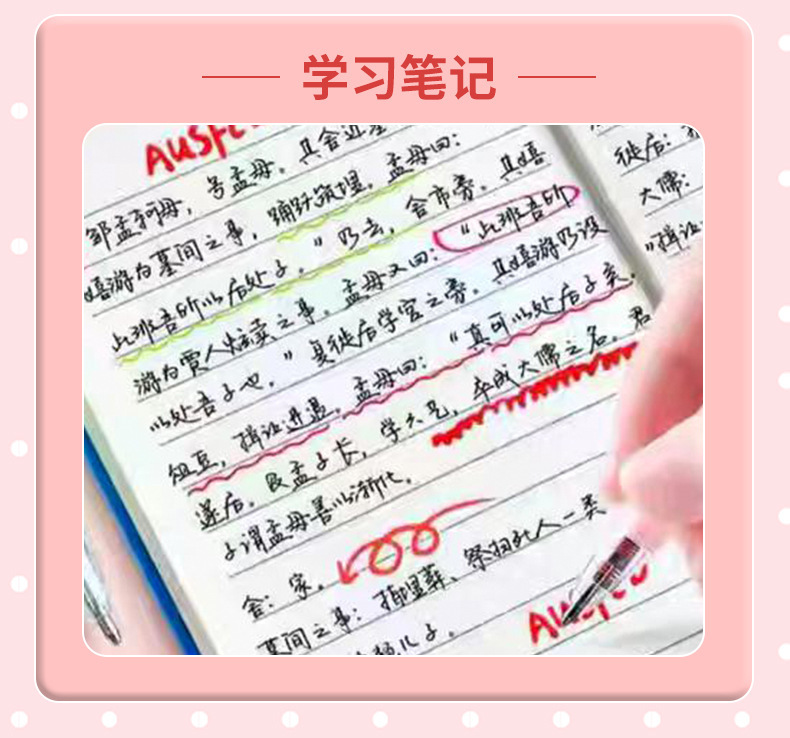 学习笔记
邹孟轲母,号孟母。其舍近墓
嬉游为墓间之事,踊跃筑埋。孟母曰:
此非吾所以居处子。"乃去,舍市旁。其嬉
游为贾人炫卖之事。孟母又曰:"此非吾所
以处吾子也。"复徙居学宫之旁。其嬉游乃设
俎豆,揖让进退。孟母曰:"真可以处居子矣。
遂居。及孟子长,学六艺,卒成大儒之名。君
子谓孟母善以渐化。
舍:家。
墓间之事:指埋葬、祭扫死人一类
徙居:
大儒:
"揖让